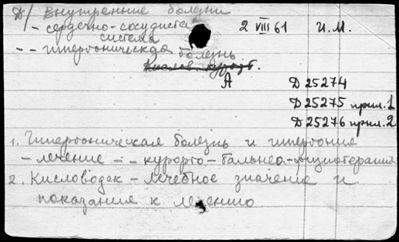 Д/ Внутренние болезни
- сердечно-сосудистая
система
-- гипертоническая болезнь
Кислов. курорт.
2 VIII 61 И.М.
А
Д 25274
Д 25275 прил. 1
Д 25276 прил. 2
1. Гипертоническая болезнь и гипертония
- лечение -:- курорто-бальнео-физиотерапия
2. Кисловодск - лечебное значение и
показания к лечению